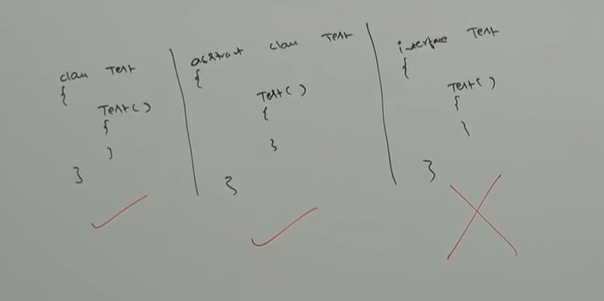 class Test
{
Test()
{
}
}
abstract class Test
{
Test()
{
}
}
interface Test
{
Test()
{
}
}